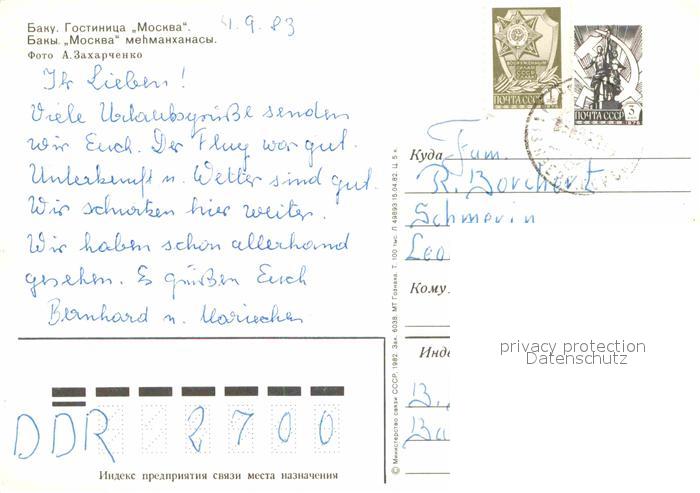 Баку. Гостиница „Москва“.
Бакы. „Москва“ меһманханасы.
Фото А.Захарченко
4.9.83
Ihr Lieben!
Viele Urlaubsgrüße senden
wir Euch. Der Flug war gut.
Unterkunft u. Wetter sind gut.
Wir schwitzen hier weiter.
Wir haben schon allerhand
gesehen. Es grüßen Euch
Bernhard u. Mariechen
ПОЧТА СССР 1
ПОЧТА СССР 3
1976
Куда Fam.
R. Borchert
Schwerin
Leo
Кому
privacy protection
Datenschutz
Инде
B.
Ba
© Министерство связи СССР, 1982. Зак. 6038. МТ Гознака. Т. 100 тыс. Л 49893 15.04.82. Ц. 5 к.
DDR 2700
Индекс предприятия связи места назначения